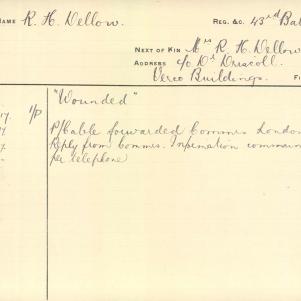 NAME R. H. Dellow. REG. &C. 43rd Bat
NEXT OF KIN Mrs R. H. Dellow
ADDRESS c/o Dr Driscoll.
Verco Buildings. F
17. 1/P "Wounded"
P/Cable forwarded Commrs London
Reply from Commrs. Information commun
per telephone